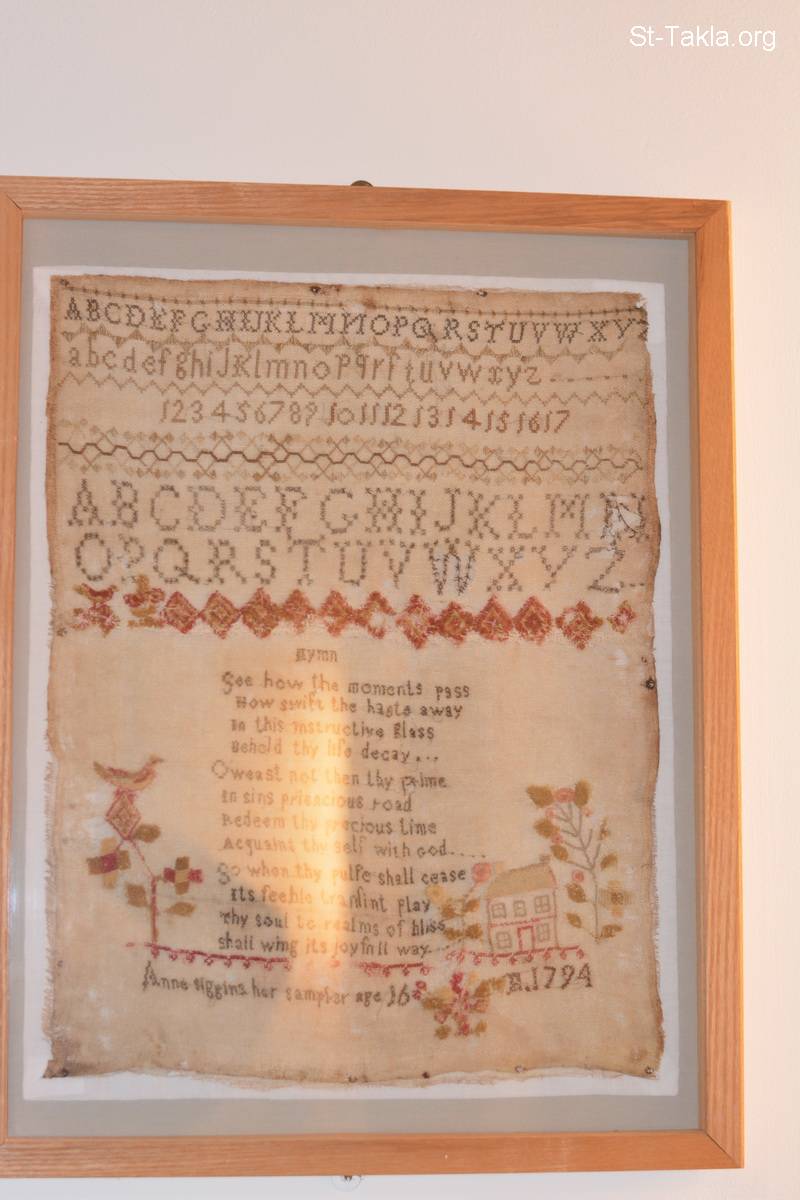 St-Takla.org
ABCDEFGHIJKLMNOPQRSTUVWXYZ
abcdefghiJklmnopqrſtuvwxyz
123456789 10 11 12 13 14 15 16 17
ABCDEFGHIJKLMN
OPQRSTUVWXYZ
Hymn
See how the moments pass
How swift the haste away
In this instructive glass
Behold thy life decay...
O weast not then thy prime
In sins road
Redeem thy precious time
Acquaint thy self with God....
So when thy pulse shall cease
Its feeble tranſint play
Thy soul to realms of bliss
shall wing its joyfull way...
Anne siggins her sampler age 16
A.1794